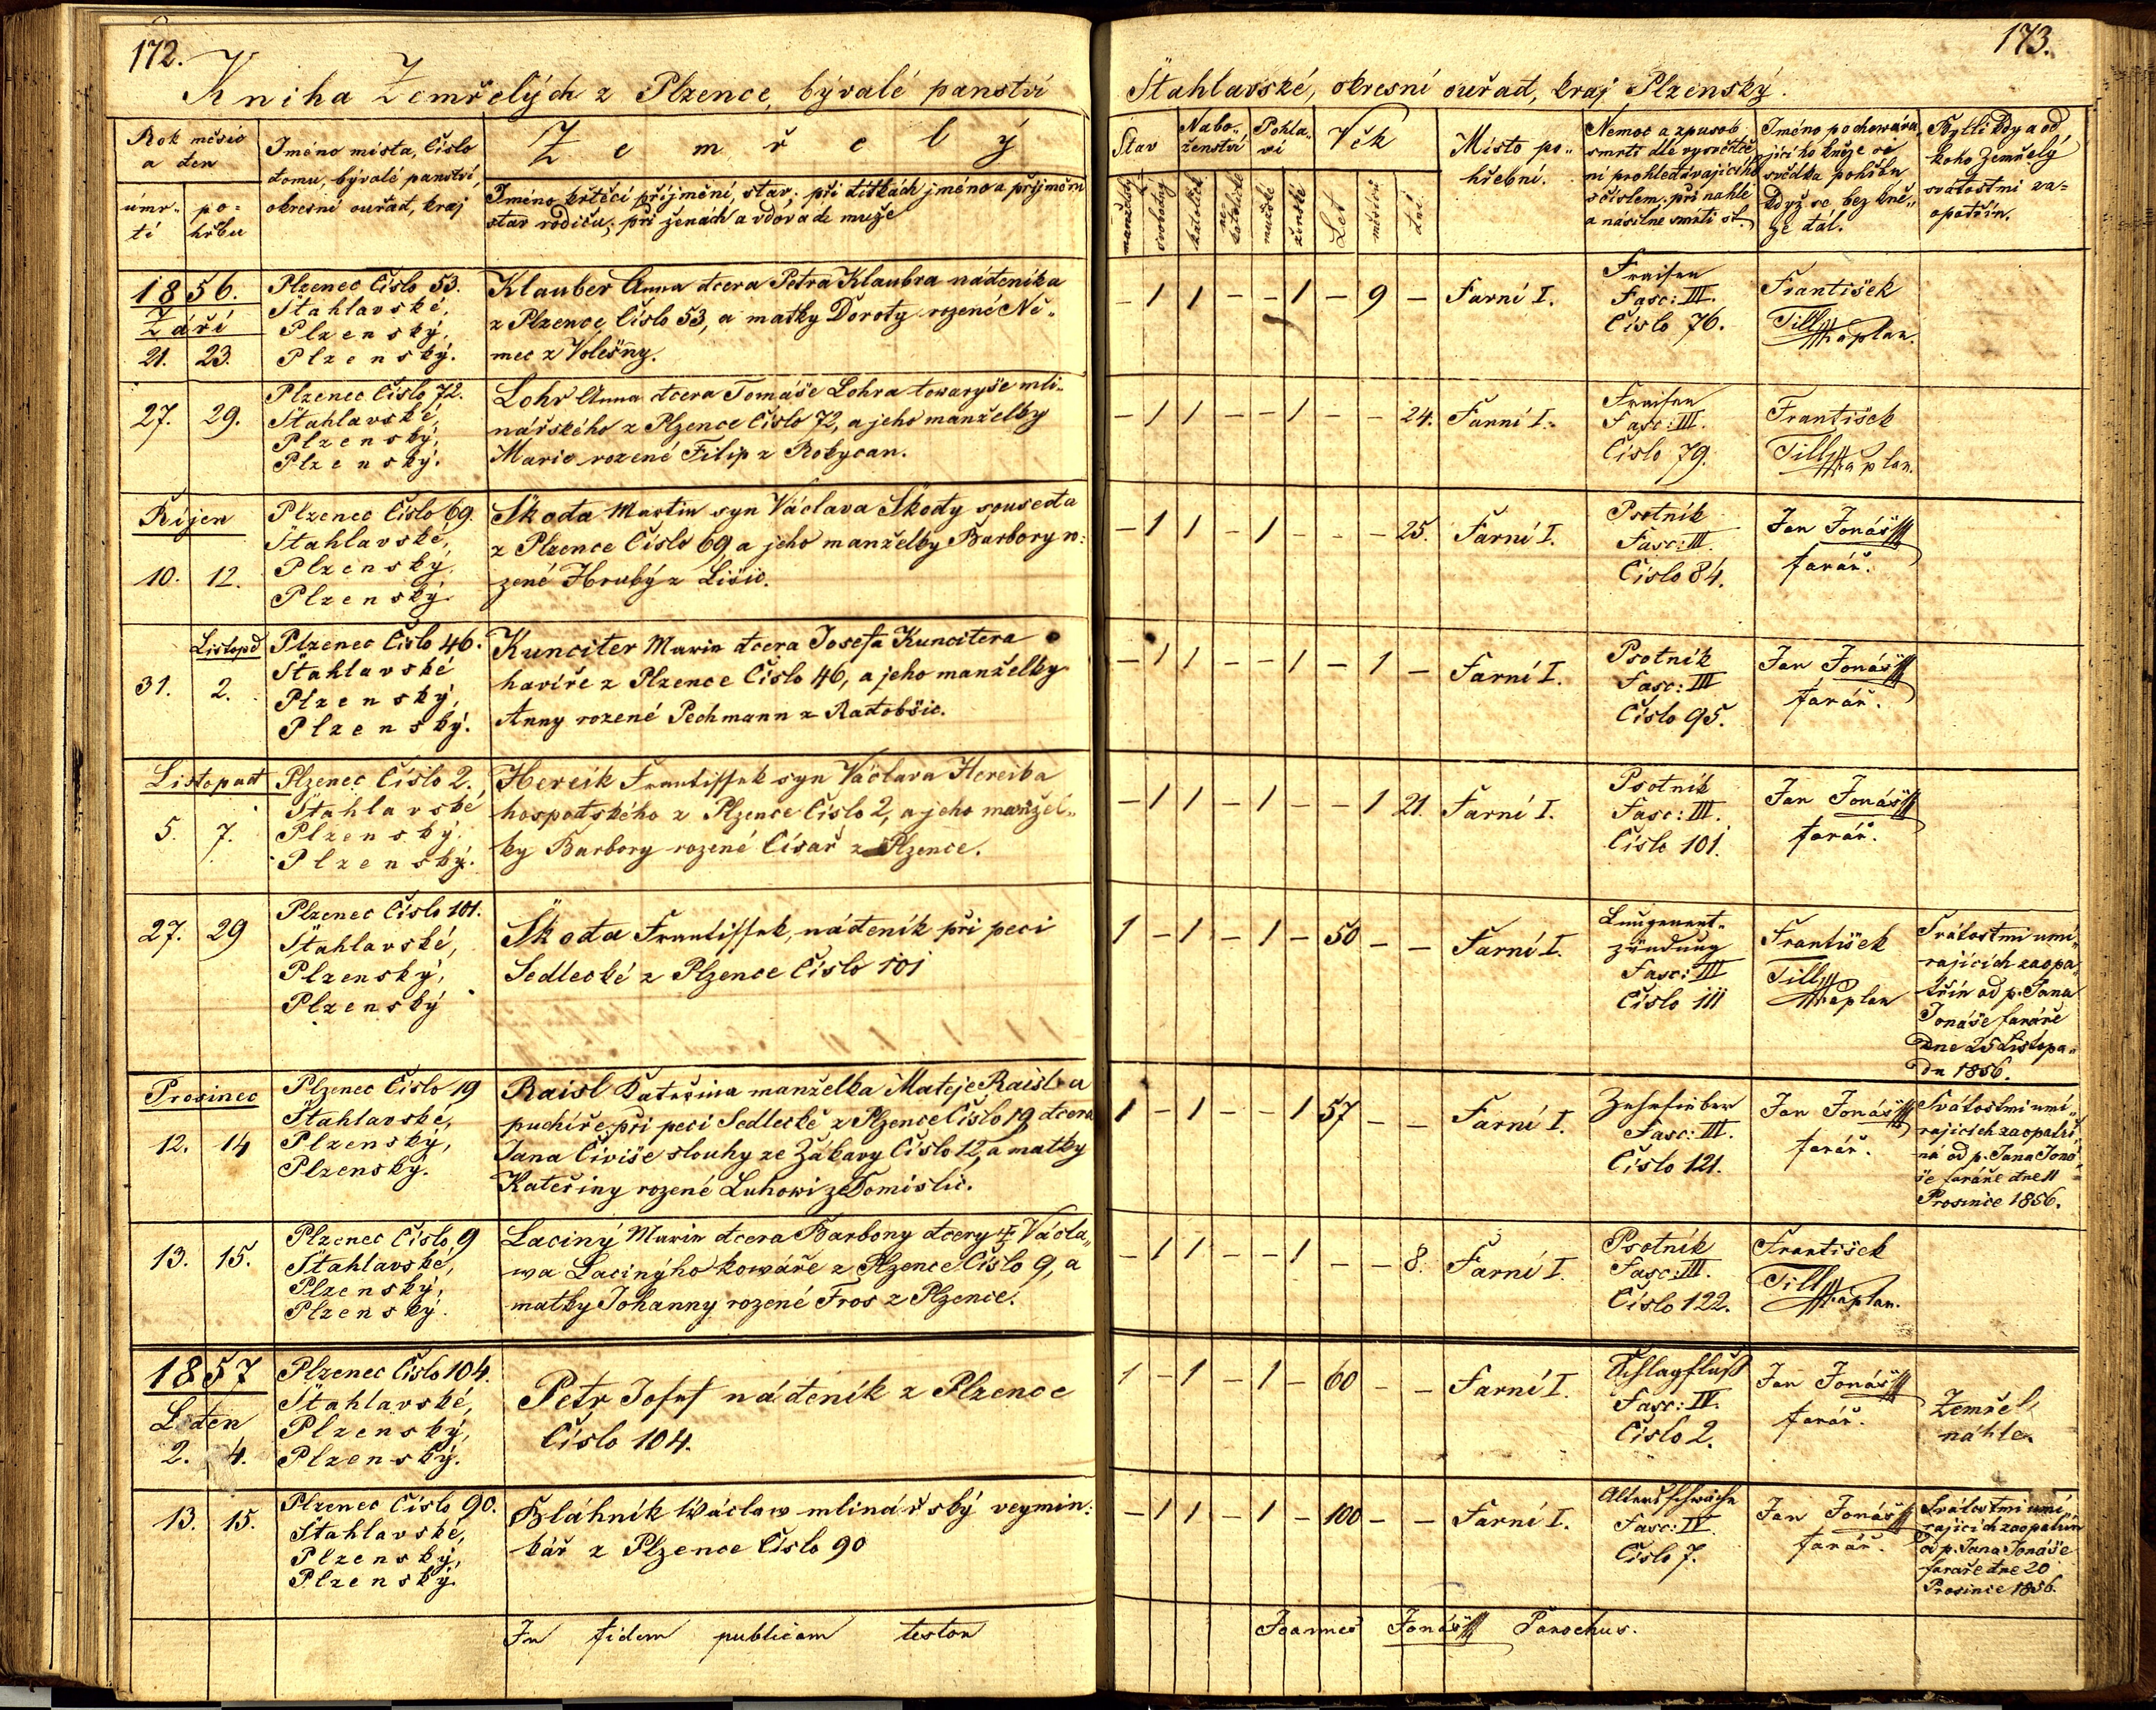 172.
Kniha Zemřelých z Plzence, bývalé panství
Rok měsíc
a den
úmr-
tí
po=
hřbu
Jméno místa, Číslo
domu, bývalé panství,
okresní ouřad, kraj
Zemřelý
Jméno křtěcí příjmění, stav; při dítkách jméno a příjmění
stav rodičů; při ženách a vdovách muže
1856.
Září
21. 23.
Plzenec Číslo 53.
Štahlavské,
Plzenský,
Plzenský.
Klauber Anna dcera Petra Klaubra nádeníka
z Plzence Číslo 53, a matky Doroty rozené Ně-
mec z Volešny.
27. 29.
Plzenec Číslo 72.
Štahlavské,
Plzenský,
Plzenský.
Lohr Anna dcera Tomáše Lohra towaryše mli-
nářského z Plzence Číslo 72, a jeho manželky
Marie rozené Filip z Rokycan.
Říjen
10. 12.
Plzenec Číslo 69.
Štahlavské,
Plzenský,
Plzenský.
Škoda Martin syn Václava Škody souseda
z Plzence Číslo 69, a jeho manželky Barbory ro:
zené Hrubý z Lišic.
Listopd
31. 2.
Plzenec Číslo 46.
Štahlavské
Plzenský,
Plzenský.
Kunciter Marie dcera Josefa Kuncitera
havíře z Plzence Číslo 46, a jeho manželky
Anny rozené Pechmann z Radobšic.
Listopad
5. 7.
Plzenec Číslo 2.
Štahlavské
Plzenský.
Plzenský.
Hereik Frantissek syn Václava Hereika
hospodského z Plzence Číslo 2, a jeho manžel-
ky Barbory rozené Císař z Plzence.
27. 29
Plzenec Číslo 101.
Štahlavské,
Plzenský,
Plzenský
Škoda Frantissek, nádeník při peci
Sedlecké z Plzence Číslo 101
Prosinec
12. 14
Plzenec Číslo 19
Štahlavské,
Plzenský,
Plzenský.
Raisl Kateřina manželka Matěje Raisl a
puchíře při peci Sedlecké z Plzence Číslo 19, dcera
Jana Čiviše slouhy ze Zábavy Číslo 12, a matky
Kateřiny rozené Luhowi ze Domislic.
13. 15.
Plzenec Číslo 9
Štahlavské,
Plzenský,
Plzenský.
Laciný Marie dcera Barbory dcery Václa-
wa Lacinýho kowáře z Plzence Číslo 9, a
matky Johanny rozené Fros z Plzence.
1857
Leden
2. 4.
Plzenec Číslo 104.
Štahlavské,
Plzenský,
Plzenský.
Petr Josef nádeník z Plzence
Číslo 104.
13. 15.
Plzenec Číslo 90.
Štahlavské,
Plzenský,
Plzenský.
Bláhník Wáclaw mlinářský veymin-
kář z Plzence Číslo 90
In fidem publicam testor
173.
Štahlavské, okresní ouřad, kraj Plzenský.
Stav
manželský
svobodný
Nabo-
ženství
katolické
ne
katolické
Pohla-
ví
mužské
ženské
Věk
Let
měsíců
dní
Místo po-
hřební.
Nemoc a způsob
smrti dle vysvědče
ní prohledávajícího
s číslem, při nahlé
a násilné smrti st.
Jméno pochowáva
jícího kněze a
svědka pohřbu
když se bez kně-
ze dál.
Bylli kdy a od
koho Zemřelý
svátostmi za-
opatřín.
- 1 1 - - 1 - 9 - Farní I.
Fraisen
Fasc: III.
Číslo 76.
František
Till kaplan.
- 1 1 - - 1 - - 24. Farní I.
Fraisen
Fasc: III.
Číslo 79.
František
Till kaplan.
- 1 1 - 1 - - - 25. Farní I.
Psotník
Fasc: III.
Číslo 84.
Jan Jonáš
farář.
- 1 1 - - 1 - 1 - Farní I.
Psotník
Fasc: III
Číslo 95.
Jan Jonáš
farář.
- 1 1 - 1 - - 1 21. Farní I.
Psotník
Fasc: III.
Číslo 101.
Jan Jonáš
farář.
1 - 1 - 1 - 50 - - Farní I.
Lungenent-
zündung
Fasc: III
Číslo 111
František
Till kaplan
Svátostmi umí-
rajících zaopa-
třín od p. Jana
Jonáše faráře
dne 25 Listopa-
du 1856.
1 - 1 - - 1 57 - - Farní I.
Zehrfieber
Fasc: III.
Číslo 121.
Jan Jonáš
farář.
Svátostmi umí-
rajících zaopatři-
ná od p. Jana Joná-
še faráře dne 11
Prosince 1856.
- 1 1 - - 1 - - 8. Farní I.
Psotník
Fasc: III.
Číslo 122.
František
Till kaplan.
1 - 1 - 1 - 60 - - Farní I.
Schlagfluß
Fasc: IV.
Číslo 2.
Jan Jonáš
farář.
Zemřel,
náhle.
- 1 1 - 1 - 100 - - Farní I.
Altersschwäche
Fasc: IV.
Číslo 7.
Jan Jonáš
farář.
Svátostmi umí-
rajících zaopatřín
od p. Jana Jonáše
faráře dne 20
Prosince 1856.
Joannes Jonáš Parochus.